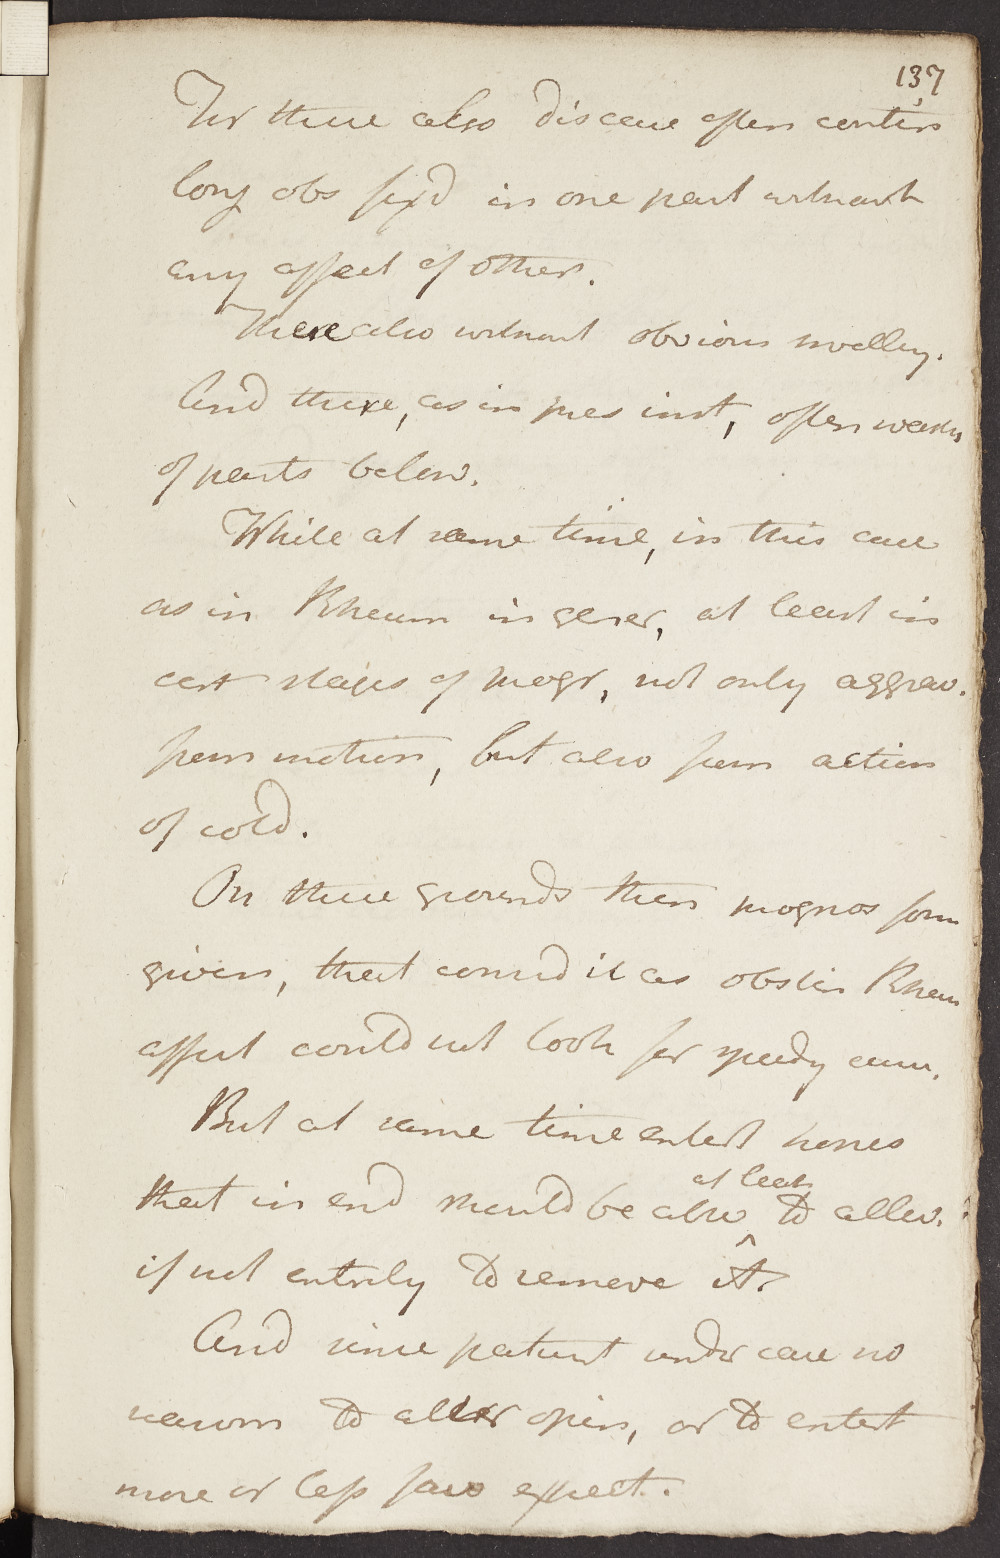 137
For these also disease often contin
long obs fix'd in one part without
any affect of other.
These also without obvious swelling.
And these, as in pres inst, often weakn
of parts below.
While at same time, in this case
as in Rheum in gener, at least in
cert stages of progr, not only aggrav.
from motion, but also from action
of cold.
On these grounds then prognos form
given, that consid it as obstin Rheum
affect could not look for speedy cure.
But at same time entert hopes
at least
that in end should be able to allev.
if not entirely to remove it.
And since patient under care no
reason to alter opin, or to entert
more or less fav expect.